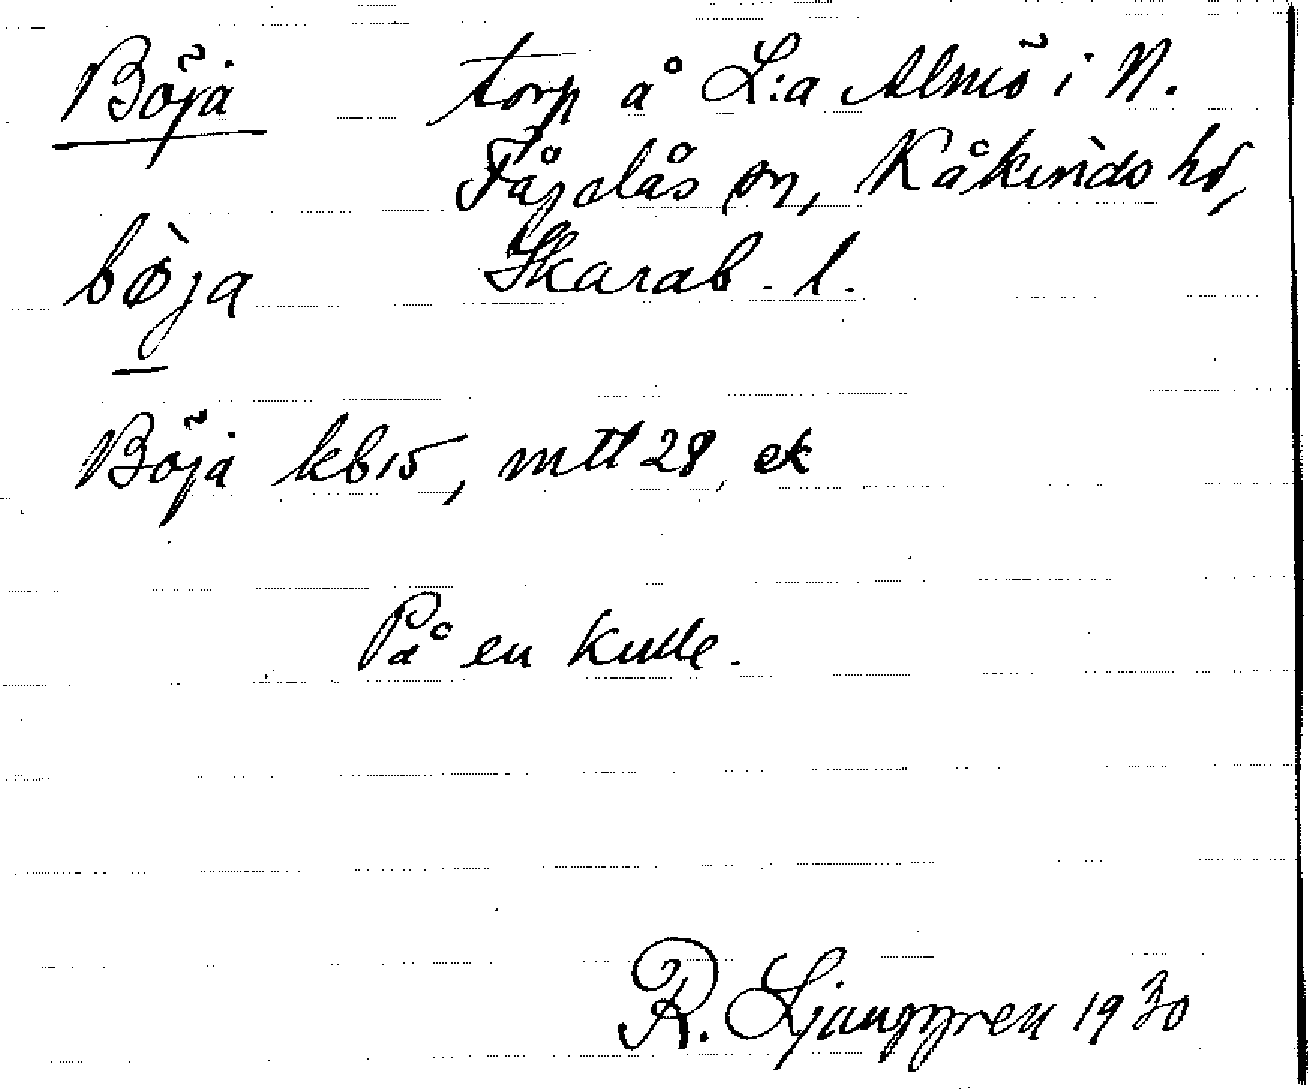 Böja torp å L:a Almö i N.
Fågelås sn, Kåkinds hd,
bøja Skarab. l.
Böja kb15, mtl 28, ek
På en kulle.
R. Ljunggren 1930